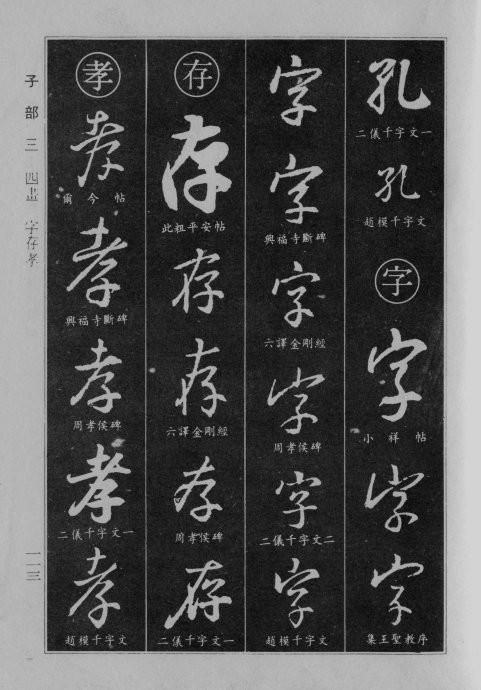 孔
二儀千字文一
孔
趙模千字文
字
字
小祥帖
字
字
集王聖教序
字
字
興福寺斷碑
字
六譯金剛經
字
周孝侯碑
字
二儀千字文二
字
趙模千字文
存
存
此粗平安帖
存
存
六譯金剛經
存
周孝侯碑
存
二儀千字文一
孝
孝
爾今帖
孝
興福寺斷碑
孝
周孝侯碑
孝
二儀千字文一
孝
趙模千字文
子部三 四畫 字存孝
一一三